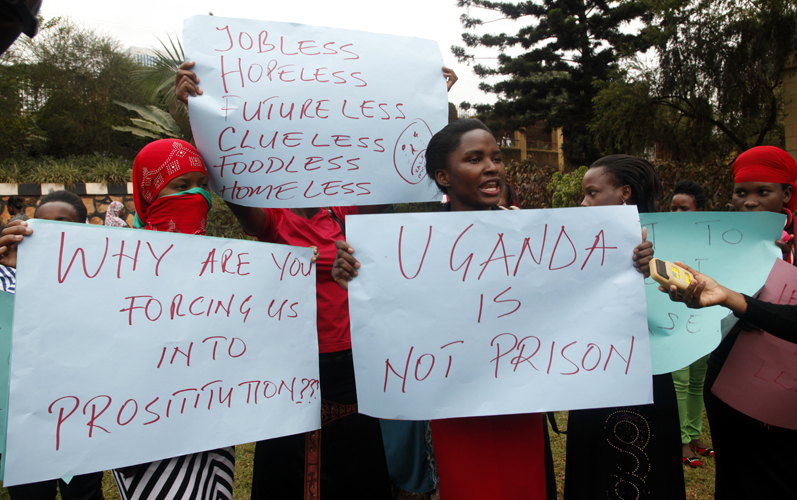 JOBLESS
HOPELESS
FUTURELESS
CLUELESS
FOODLESS
HOMELESS
WHY ARE YOU
FORCING US
INTO
PROSTITUTION???
UGANDA
IS
NOT PRISON
TO